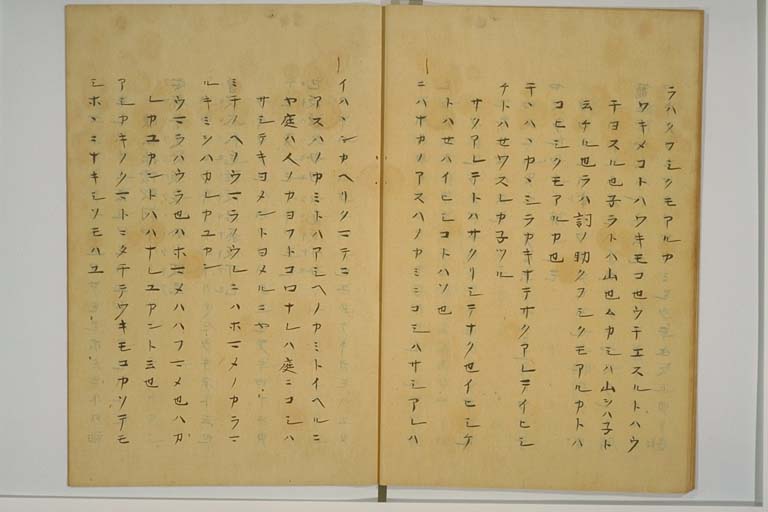 ラハクワシクモアルカ
ワキメコトハワキモコ也ウチエスルトハウ
チヨスル也子ラトハ山也ムカシハ山シハ子ト
云チル也ラハ詞ノ助クフシクモアルカトハ
コヒシクモアルカ也
チヽハヽカヽシラカキナテサクアレテイヒシ
チトハセワスレカ子ツル
サクアレテトハサクリシテナク也イヒシケ
トハセハイヒシコトハソ也
ニハナカノアスハノカミニコシハサシアレハ
イハヽンカヘリクマテニ
アスハノカミトハアシヘノカミトイヘルニ
ヤ庭ハ人ノカヨフトコロナレハ庭ニコシハ
サシテキヨメントヨメルニヤ
ミチノヘノウマラノウレニハホマメノカラマ
ルキミシハカレカユカン
ウマラハウラ也ハホマメハハフマメ也ハカ
レカユカントハハナレユアント云也
アモカキノクマトニタチテワキモコカソテモ
シホヽニナキシソモハユ